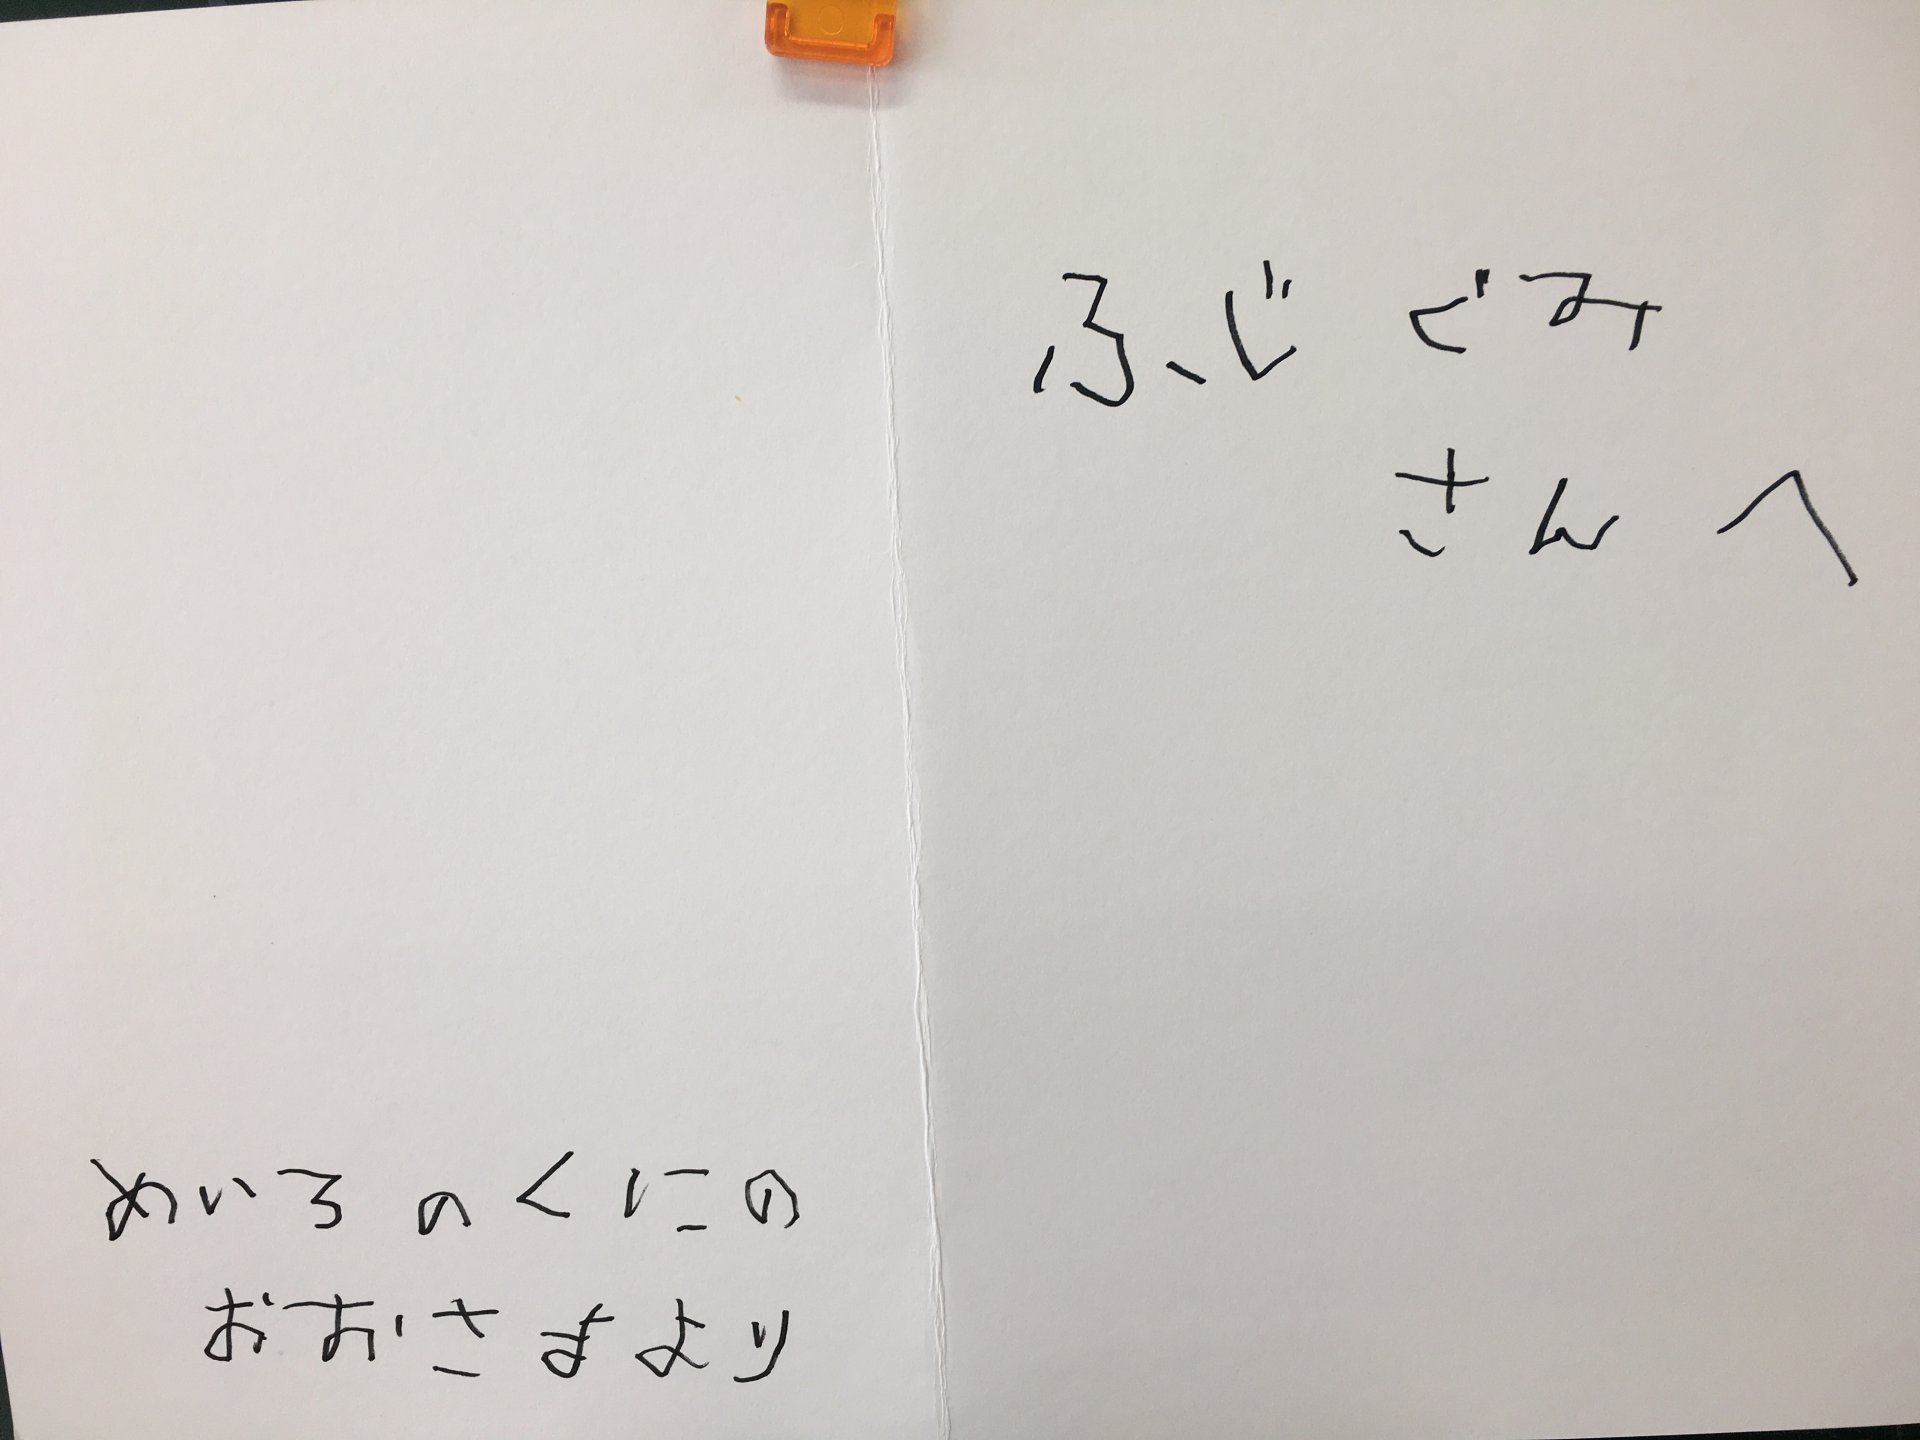 ふじぐみ
さんへ
めいろのくにの
おおさまより